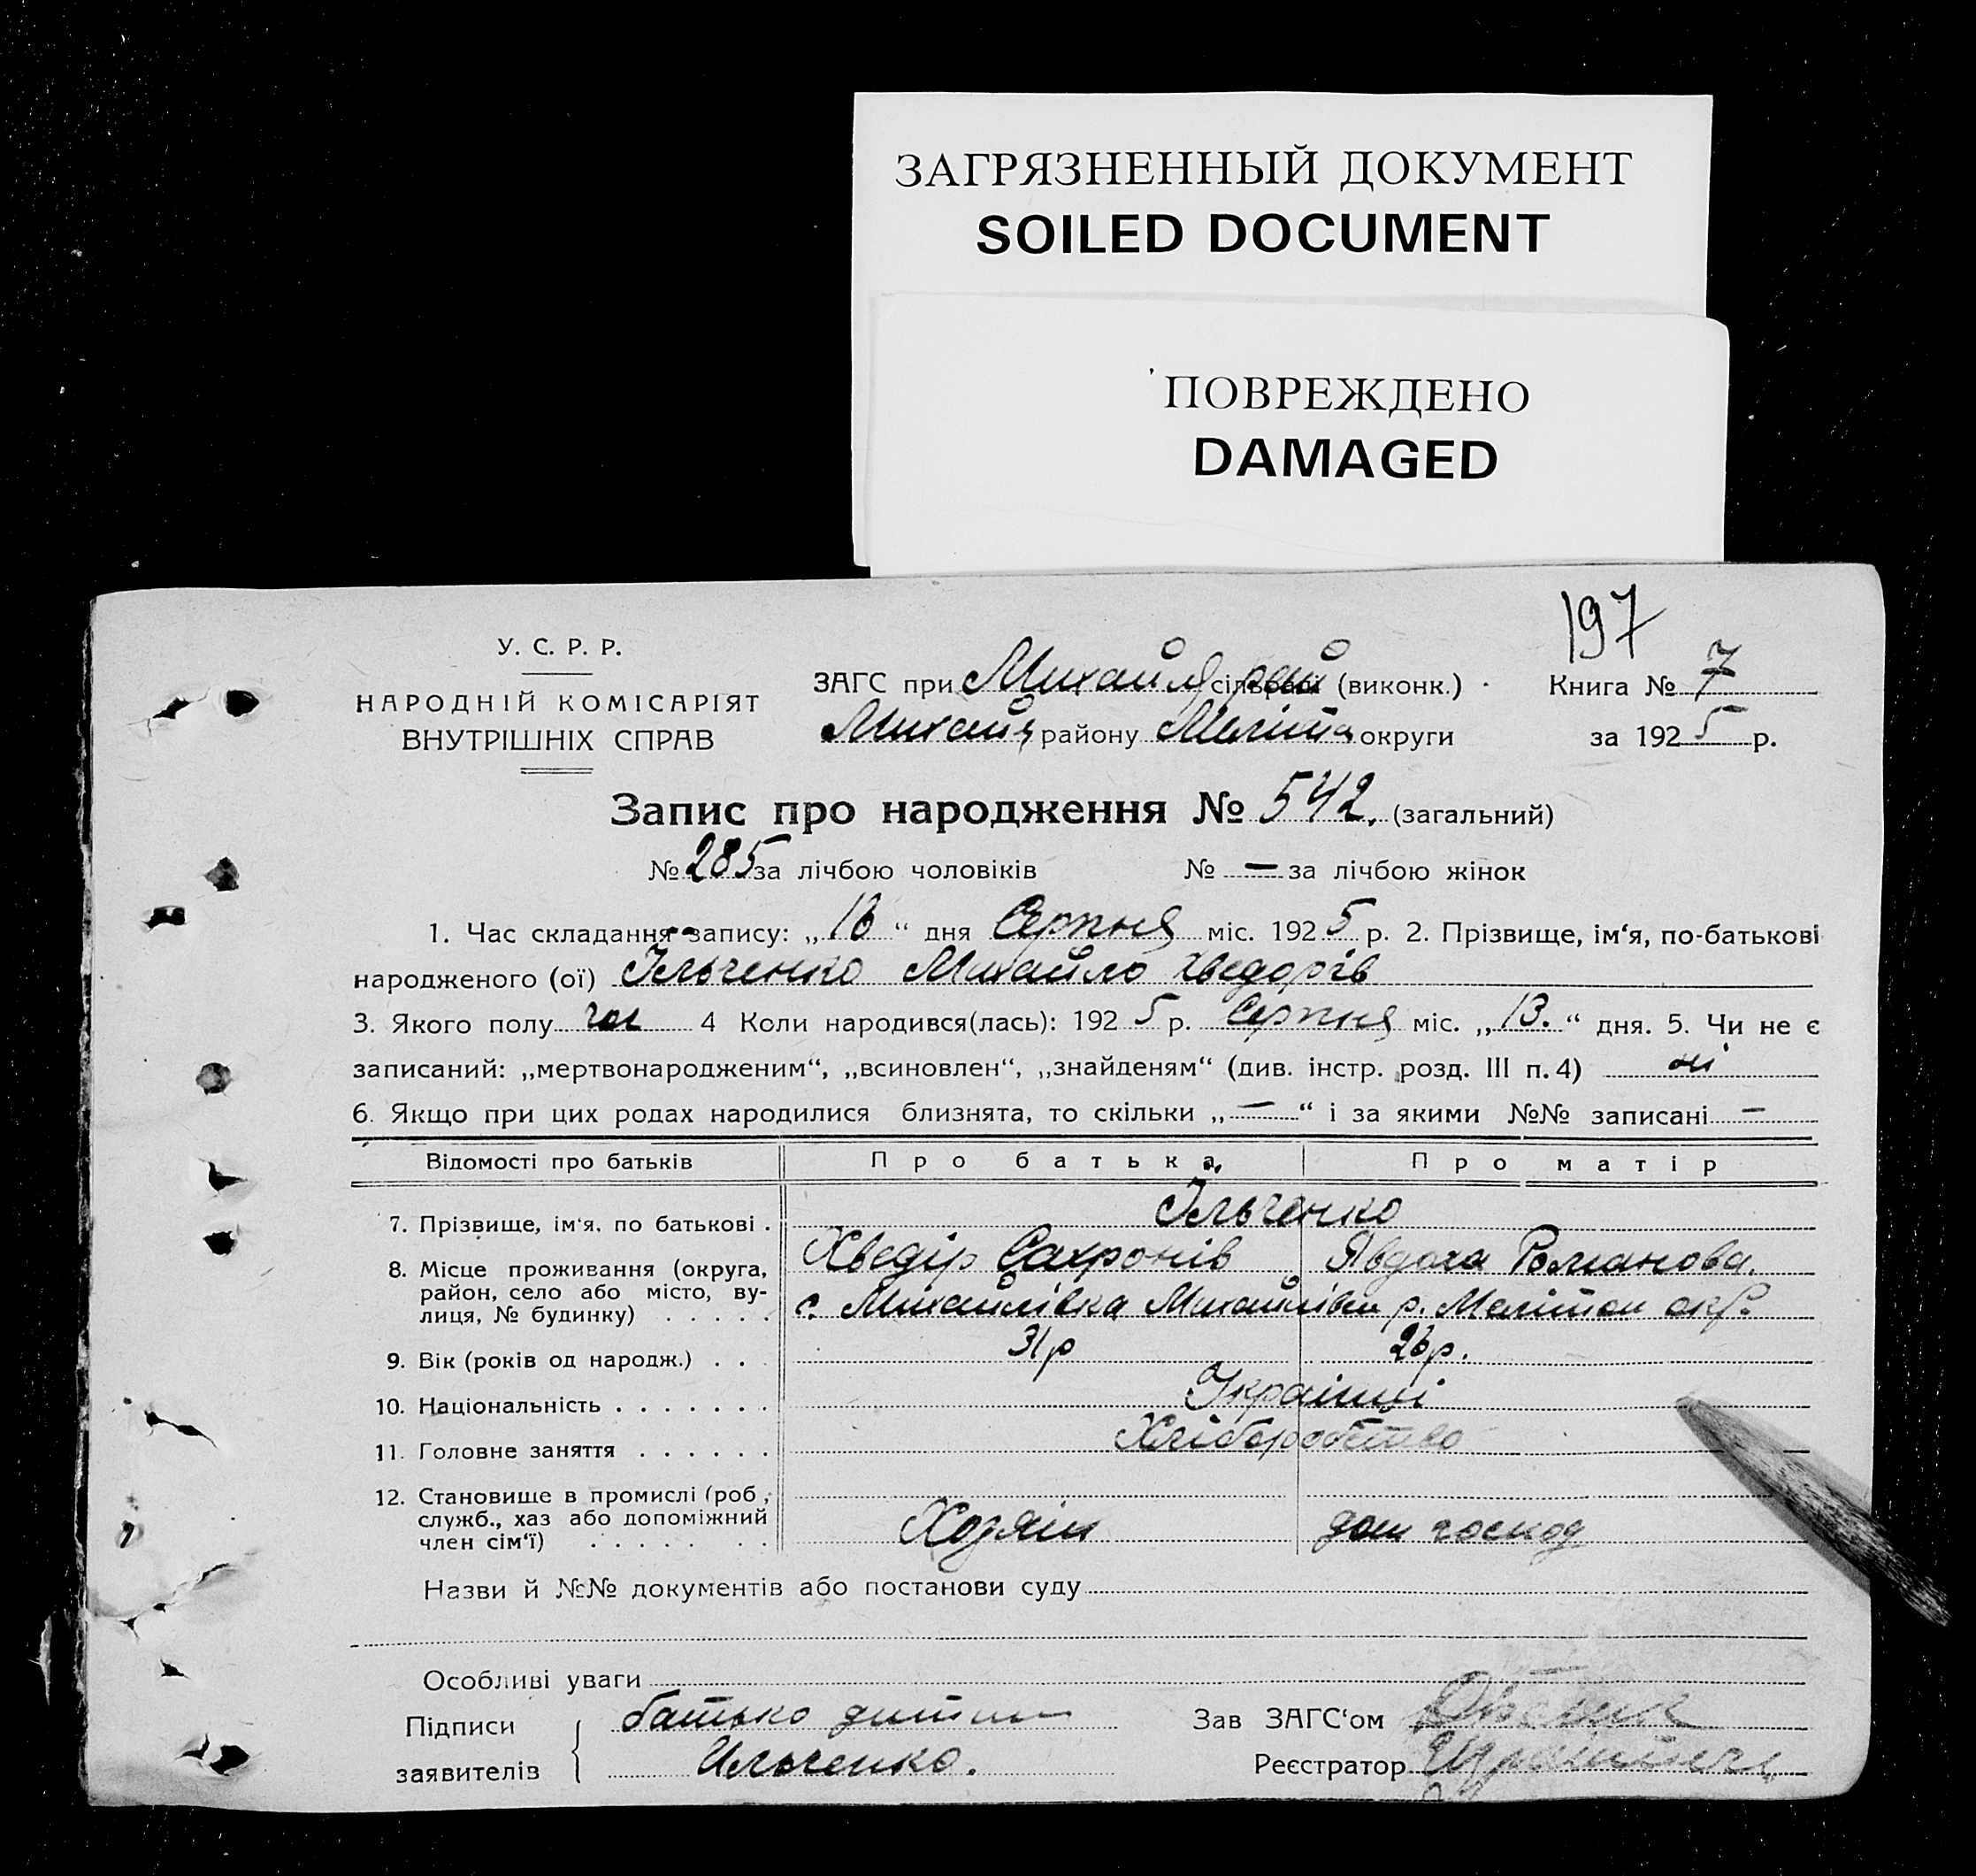 ЗАГРЯЗНЕННЫЙ ДОКУМЕНТ
SOILED DOCUMENT
ПОВРЕЖДЕНО
DAMAGED
197
У. С. Р. Р.
НАРОДНІЙ КОМІСАРІЯТ
ВНУТРІШНІХ СПРАВ
ЗАГС при Михайл сільради (виконк.) Книга № 7
Михайл району Меліт округи за 1925 р.
Запис про народження № 542. (загальний)
№ 285 за лічбою чоловіків № — за лічбою жінок
1. Час складання запису: „16“ дня Серпня міс. 1925 р. 2. Прізвище, ім‘я, по-батькові
народженого (ої) Ільченко Михайло Хведорів
3. Якого полу чол 4 Коли народився(лась): 1925 р. Серпня міс. „13.“ дня. 5. Чи не є
записаний: „мертвонародженим“, „всиновлен“, „знайденям“ (див. інстр. розд. III п. 4) ні
6. Якщо при цих родах народилися близнята, то скільки „—“ і за якими №№ записані —
Відомості про батьків Про батька Про матір
7. Прізвище, ім‘я, по батькові . Ільченко
Хведір Сахронів Явдоха Романова.
8. Місце проживання (округа,
район, село або місто, ву-
лиця, № будинку) . . . . . с. Михайлівка Михайлівськ р. Мелітоп окр.
9. Вік (років од народж.) . . . 31 р 26 р.
10. Національність . . . . . . . Українці
11. Головне заняття . . . . . . Хліборобство
12. Становище в промислі (роб.,
служб., хаз або допоміжний
член сім‘ї) . . . . . . . Хозяїн дом господ
Назви й №№ документів або постанови суду
Особливі уваги
Підписи батько дитини Зав ЗАГС‘ом
заявителів Ильченко. Реєстратор